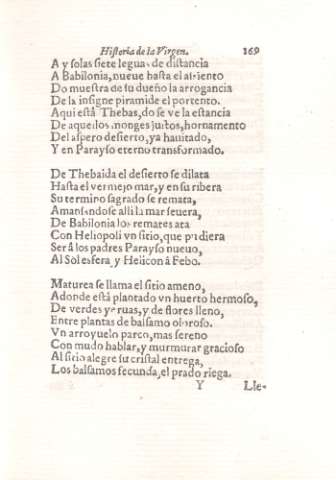 Historia de la Virgen. 169
A y solas siete leguas de distancia
A Babilonia, nueue hasta el assiento
Do muestra de su dueño la arrogancia
De la insigne piramide el portento.
Aqui està Thebas, do se ve la estancia
De aquellos monges justos, hornamento
Del aspero desierto, ya hauitado,
Y en Parayso eterno transformado.
De Thebaida el desierto se dilata
Hasta el vermejo mar, y en su ribera
Su termino sagrado se remata,
Amansandose alli la mar seuera,
De Babilonia los remates ata
Con Heliopoli vn sitio, que pudiera
Ser â los padres Parayso nueuo,
Al Sol esfera, y Helicon â Febo.
Maturea se llama el sitio ameno,
Adonde està plantado vn huerto hermoso,
De verdes yeruas, y de flores lleno,
Entre plantas de balsamo oloroso.
Vn arroyuelo parco, mas sereno
Con mudo hablar, y murmurar gracioso
Al sitio alegre su cristal entrega,
Los balsamos fecunda, el prado riega.
Y Lle-